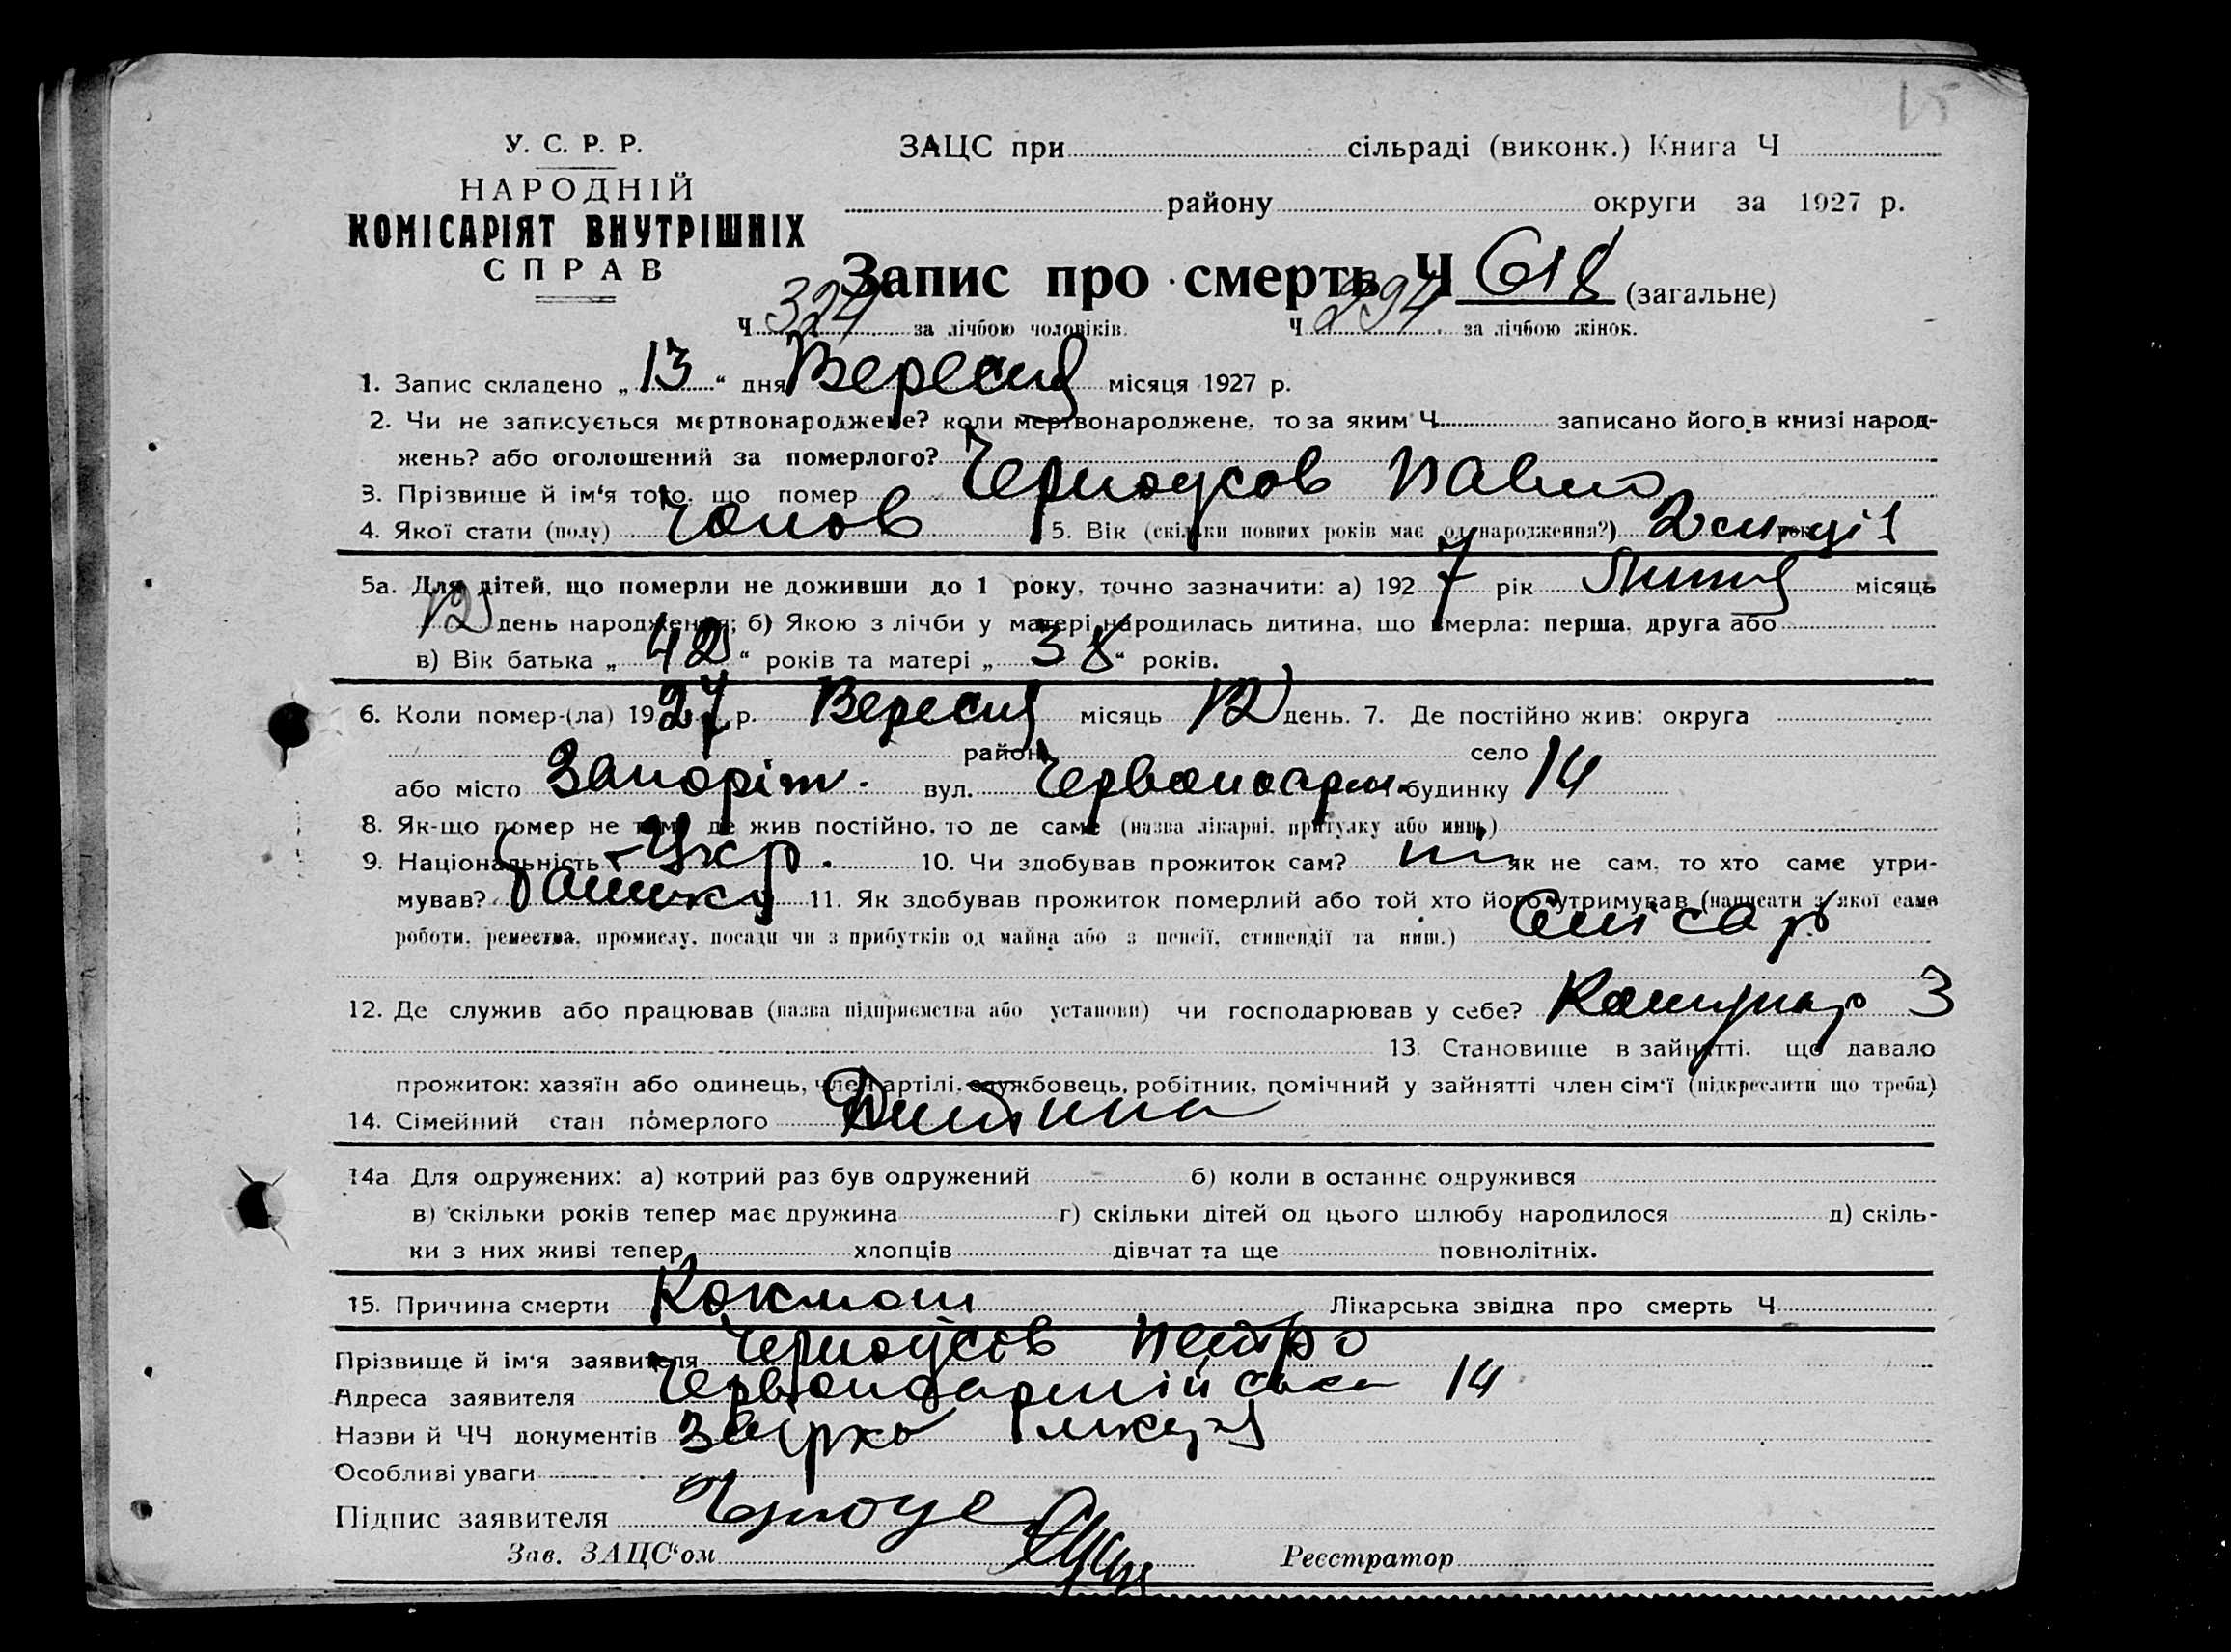 15
У. С. Р. Р.
НАРОДНІЙ
КОМІСАРІЯТ ВНУТРІШНІХ
СПРАВ
ЗАЦС при сільраді (виконк.) Книга Ч
району округи за 1927 р.
Запис про смерть Ч 618 (загальне)
Ч 324 за лічбою чоловіків. Ч 294 за лічбою жінок.
1. Запис складено „13“ дня Вересня місяця 1927 р.
2. Чи не записується мертвонароджене? коли мертвонароджене, то за яким Ч записано його в книзі народ-
жень? або оголошений за померлого?
3. Прізвище й ім‘я того, що помер Черноусов Павло
4. Якої стати (полу) Чолов 5. Вік (скільки повних років має од народження?) 2 місяці
5а. Для дітей, що померли не доживши до 1 року, точно зазначити: а) 1927 рік Липня місяць
12 день народження; б) Якою з лічби у матері народилась дитина, що вмерла: перша, друга або
в) Вік батька „42“ років та матері „38“ років.
6. Коли помер-(ла) 1927 р. Вересня місяць 12 день. 7. Де постійно жив: округа
район село
або місто Запоріж. вул. Червоноарм. будинку 14
8. Як-що помер не там, де жив постійно, то де саме (назва лікарні, притулку або инш.)
9. Національність Укр. 10. Чи здобував прожиток сам? ні як не сам, то хто саме утри-
мував? батьки 11. Як здобував прожиток померлий або той хто його утримував (написати з якої саме
роботи, ремества, промислу, посади чи з прибутків од майна або з пенсії, стипендії та инш.)
12. Де служив або працював (назва підприємства або установи) чи господарював у себе? Комунар З
13. Становище в зайнятті, що давало
прожиток: хазяїн або одинець, член артілі, службовець, робітник, помічний у зайнятті член сім‘ї (підкреслити що треба)
14. Сімейний стан померлого Дитина
14а Для одружених: а) котрий раз був одружений б) коли в останнє одружився
в) скільки років тепер має дружина г) скільки дітей од цього шлюбу народилося д) скіль-
ки з них живі тепер хлопців дівчат та ще повнолітніх.
15. Причина смерти Коклюш Лікарська звідка про смерть Ч
Прізвище й ім‘я заявителя Черноусов Петро
Адреса заявителя Червоноармійська 14
Назви й ЧЧ документів
Особливі уваги
Підпис заявителя Черноус
Зав. ЗАЦС‘ом Реєстратор